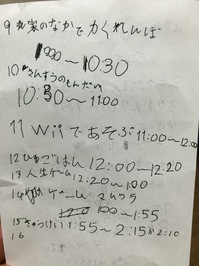 9 家のなかでかくれんぼ
～10:30
10 さんすうのもんだい
10:30～1100
11 Wiiであそぶ 11:00～12:00
12 ひるごはん 12:00～12:20
13 人生ゲーム 12:20～1:00
14 ゲーム
1:00～1:55
15 きゅうけい 1:55～2:15 2:10
16